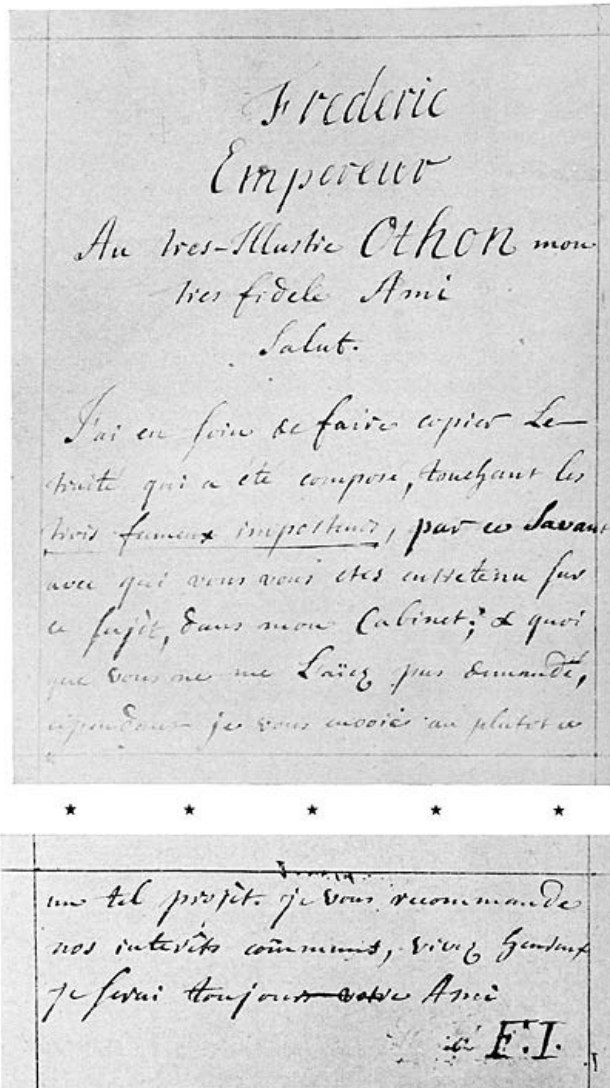 Frederic
Empereur
Au tres-Illustre Othon mon
tres fidele Ami
Salut.
J'ai eu soin de faire copier Le
traité qui a été composé, touchant les
trois fameux imposteurs, par ce Savant
avec qui vous vous etes entretenu sur
ce sujèt, dans mon Cabinet; & quoi
que vous ne me L'aïez pas demandé,
cependant je vous envoié au plutot ce
★ ★ ★ ★ ★
un tel projèt. je vous recommande
nos interêts communs, vivez heureux
je serai toujours votre Ami
F. I.